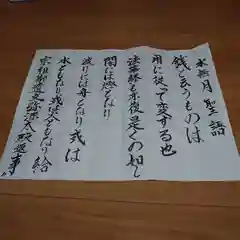 水無月聖語
銭と云うものは
用に従って変ずる也
法華経も亦復是くの如し
闇には燈となり
渡りには舟となり或は
水ともなり或は火ともなり給